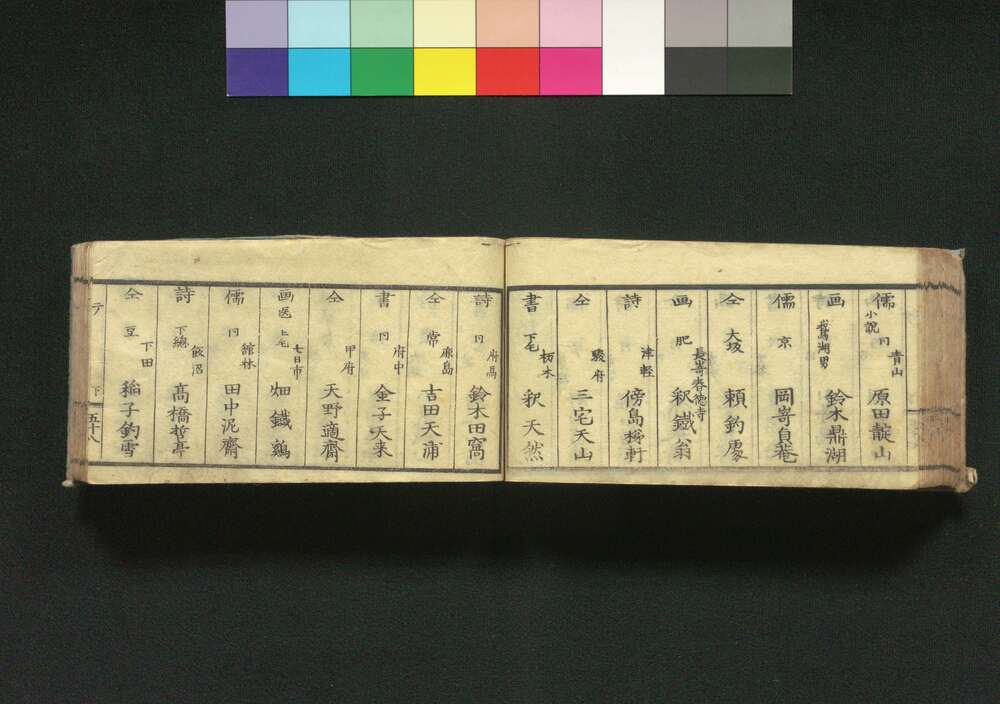 儒 小説 同 青山 原田靛山
画 鵞湖男 鈴木鼎湖
儒 京 岡嵜貞菴
仝 大坂 頼釣處
画 肥 長嵜春徳寺 釈鐵翁
詩 津軽 傍島梯軒
仝 駿府 三宅天山
書 下毛 栃木 釈天然
詩 同 鈴木田窩
仝 常 鹿島 吉田天浦
書 同 府中 金子天来
仝 甲府 天野適齋
画医 上毛 七日市 畑鐵鶏
儒 同 舘林 田中泥齋
詩 下総 飯沼 髙橋哲亭
仝 豆 下田 稲子釣雪
テ 下 五十八